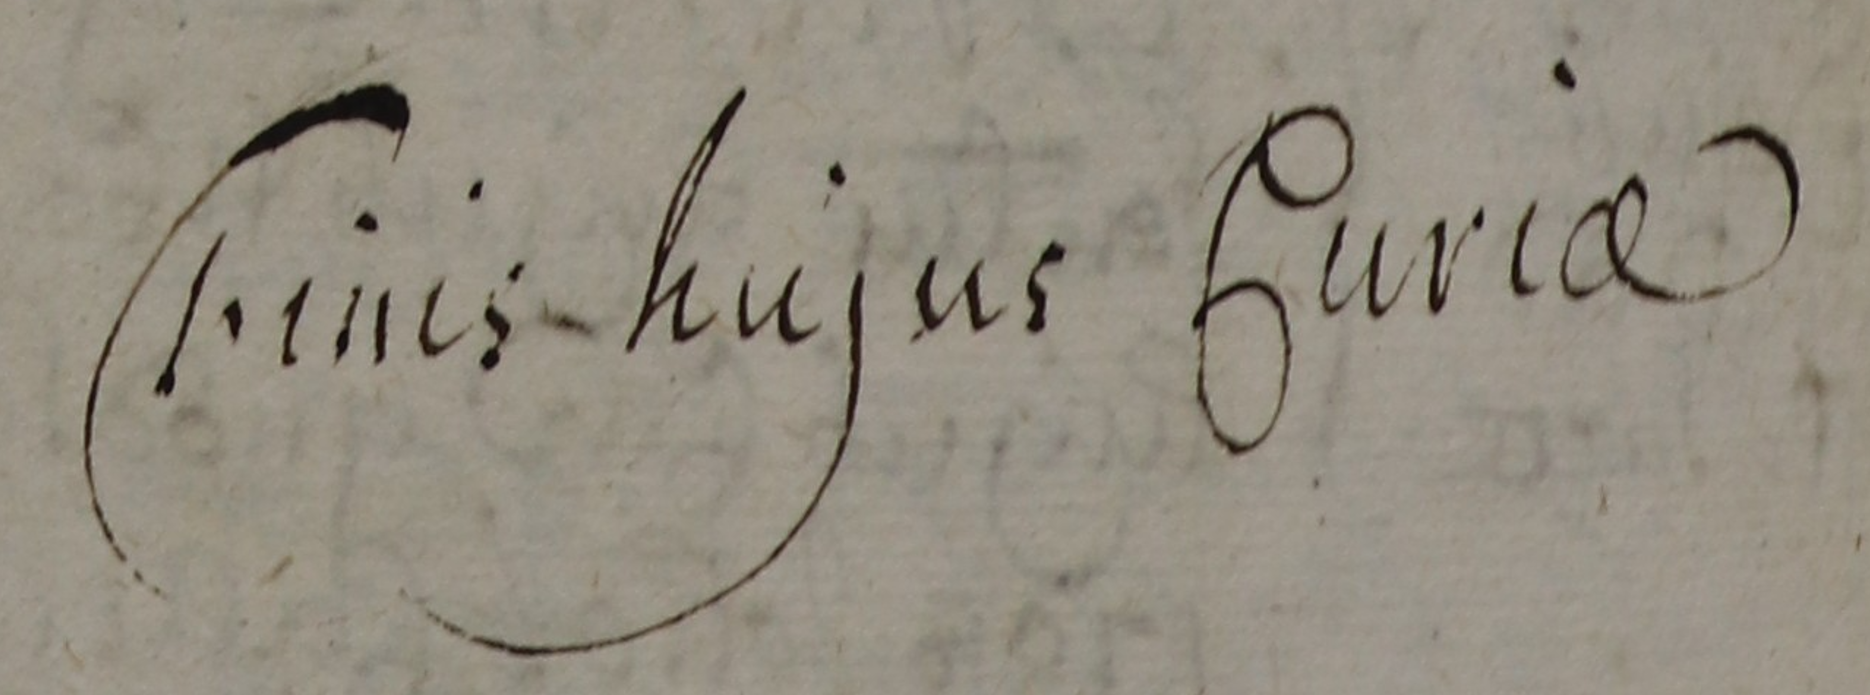 Finis hujus Curiæ